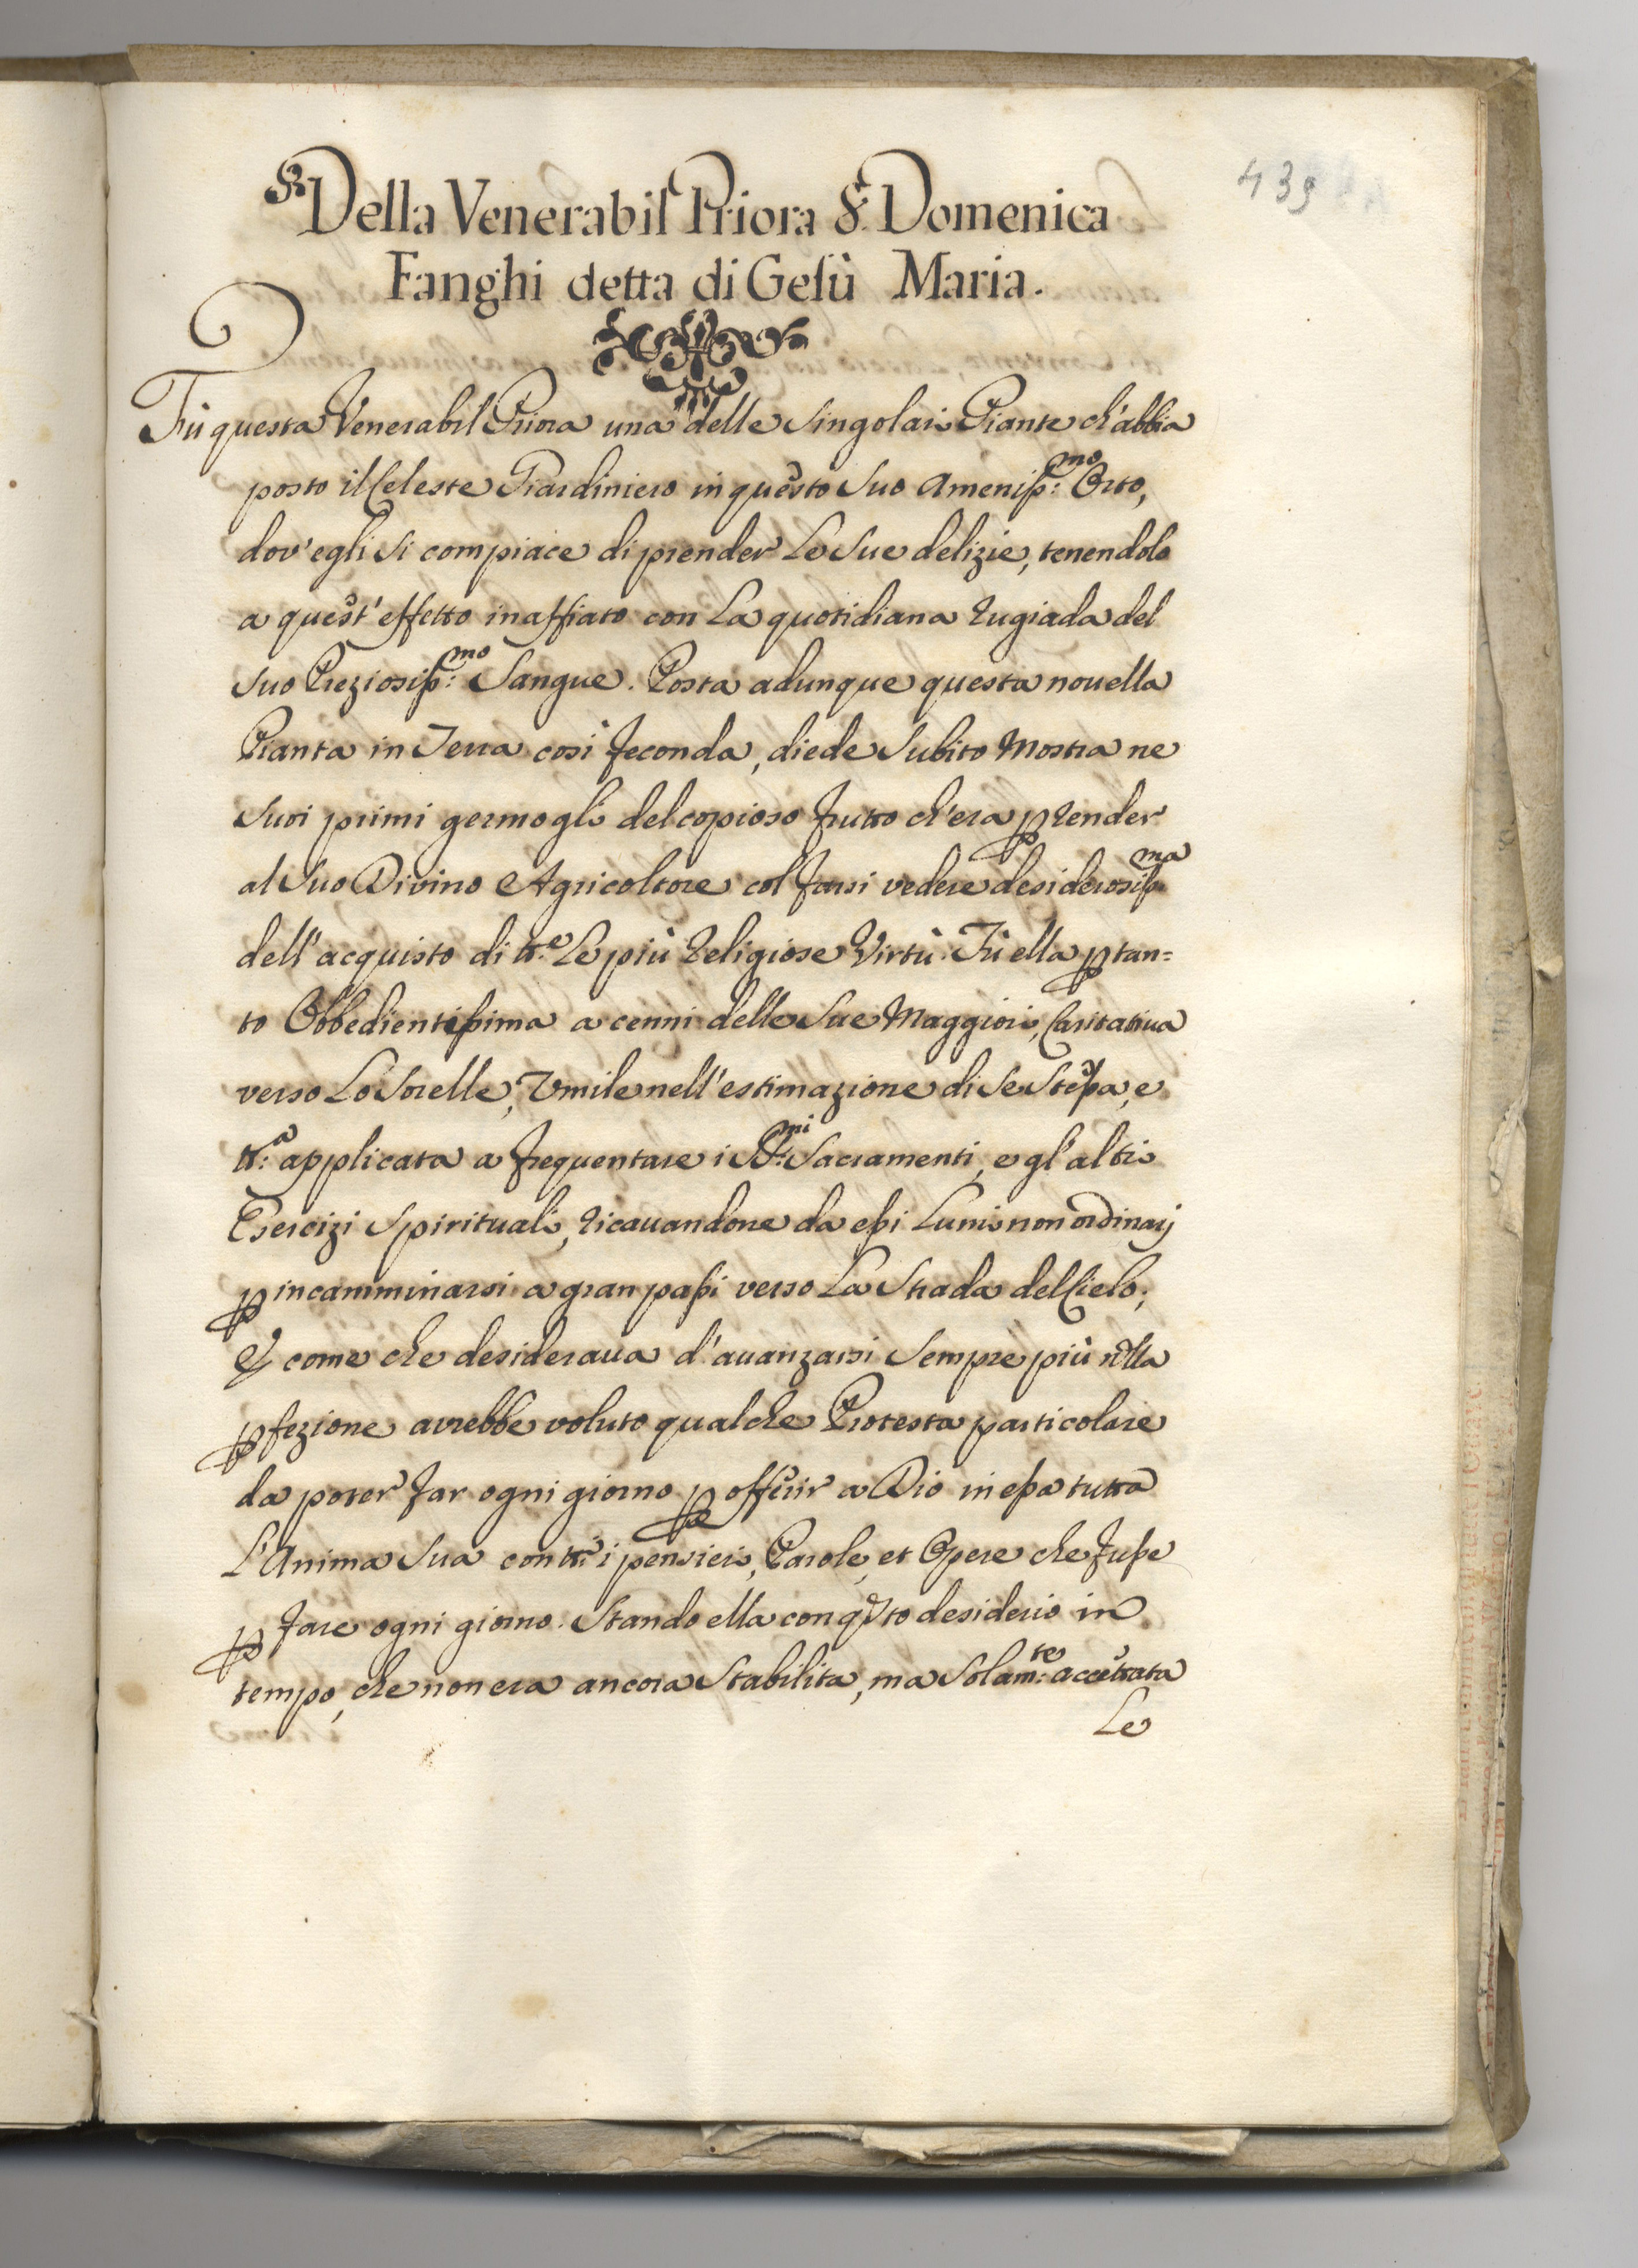 439
Della Venerabil Priora S.r Domenica
Fanghi detta di Gesù Maria.
Fù questa Venerabil Priora una delle singolari Piante ch'abbia
posto il Celeste Giardiniero in questo suo Ameniss:mo Orto,
dov'egli si compiace di prender le sue delizie, tenendolo
a quest'effetto inaffiato con la quotidiana rugiada del
suo Preziosiss:mo Sangue. Posta adunque questa nouella
Pianta in Terra così feconda, diede subito Mostra ne
suoi primi germogli del copioso frutto ch'era ꝑ render
al suo Divino Agricoltore col farsi vedere desiderosiss:ma
dell'acquisto di tt:e le più Religiose Virtù. Fù ella ꝑ tan=
to Obbedientissima a cenni delle sue Maggiori, Caritatiua
verso le Sorelle, Vmile nell'estimazione di se stessa, e
tt:a applicata a frequentare i SS:mi Sacramenti, e gl'altri
Esercizi Spirituali, ricauandone da essi Lumi non ordinarj
ꝑ incamminarsi a gran passi verso la Strada del Cielo;
E come che desideraua d'auanzarsi sempre più nlla
ꝑfezione avrebbe voluto qualche Protesta particolare
da poter far ogni giorno ꝑ offerir a Dio in essa tutta
L'Anima sua con tt:i i pensieri, Parole, et Opere che fusse
ꝑ fare ogni giorno. Stando ella con qsto desiderio in
tempo, che non era ancora Stabilita, ma solam:te accettata
Le